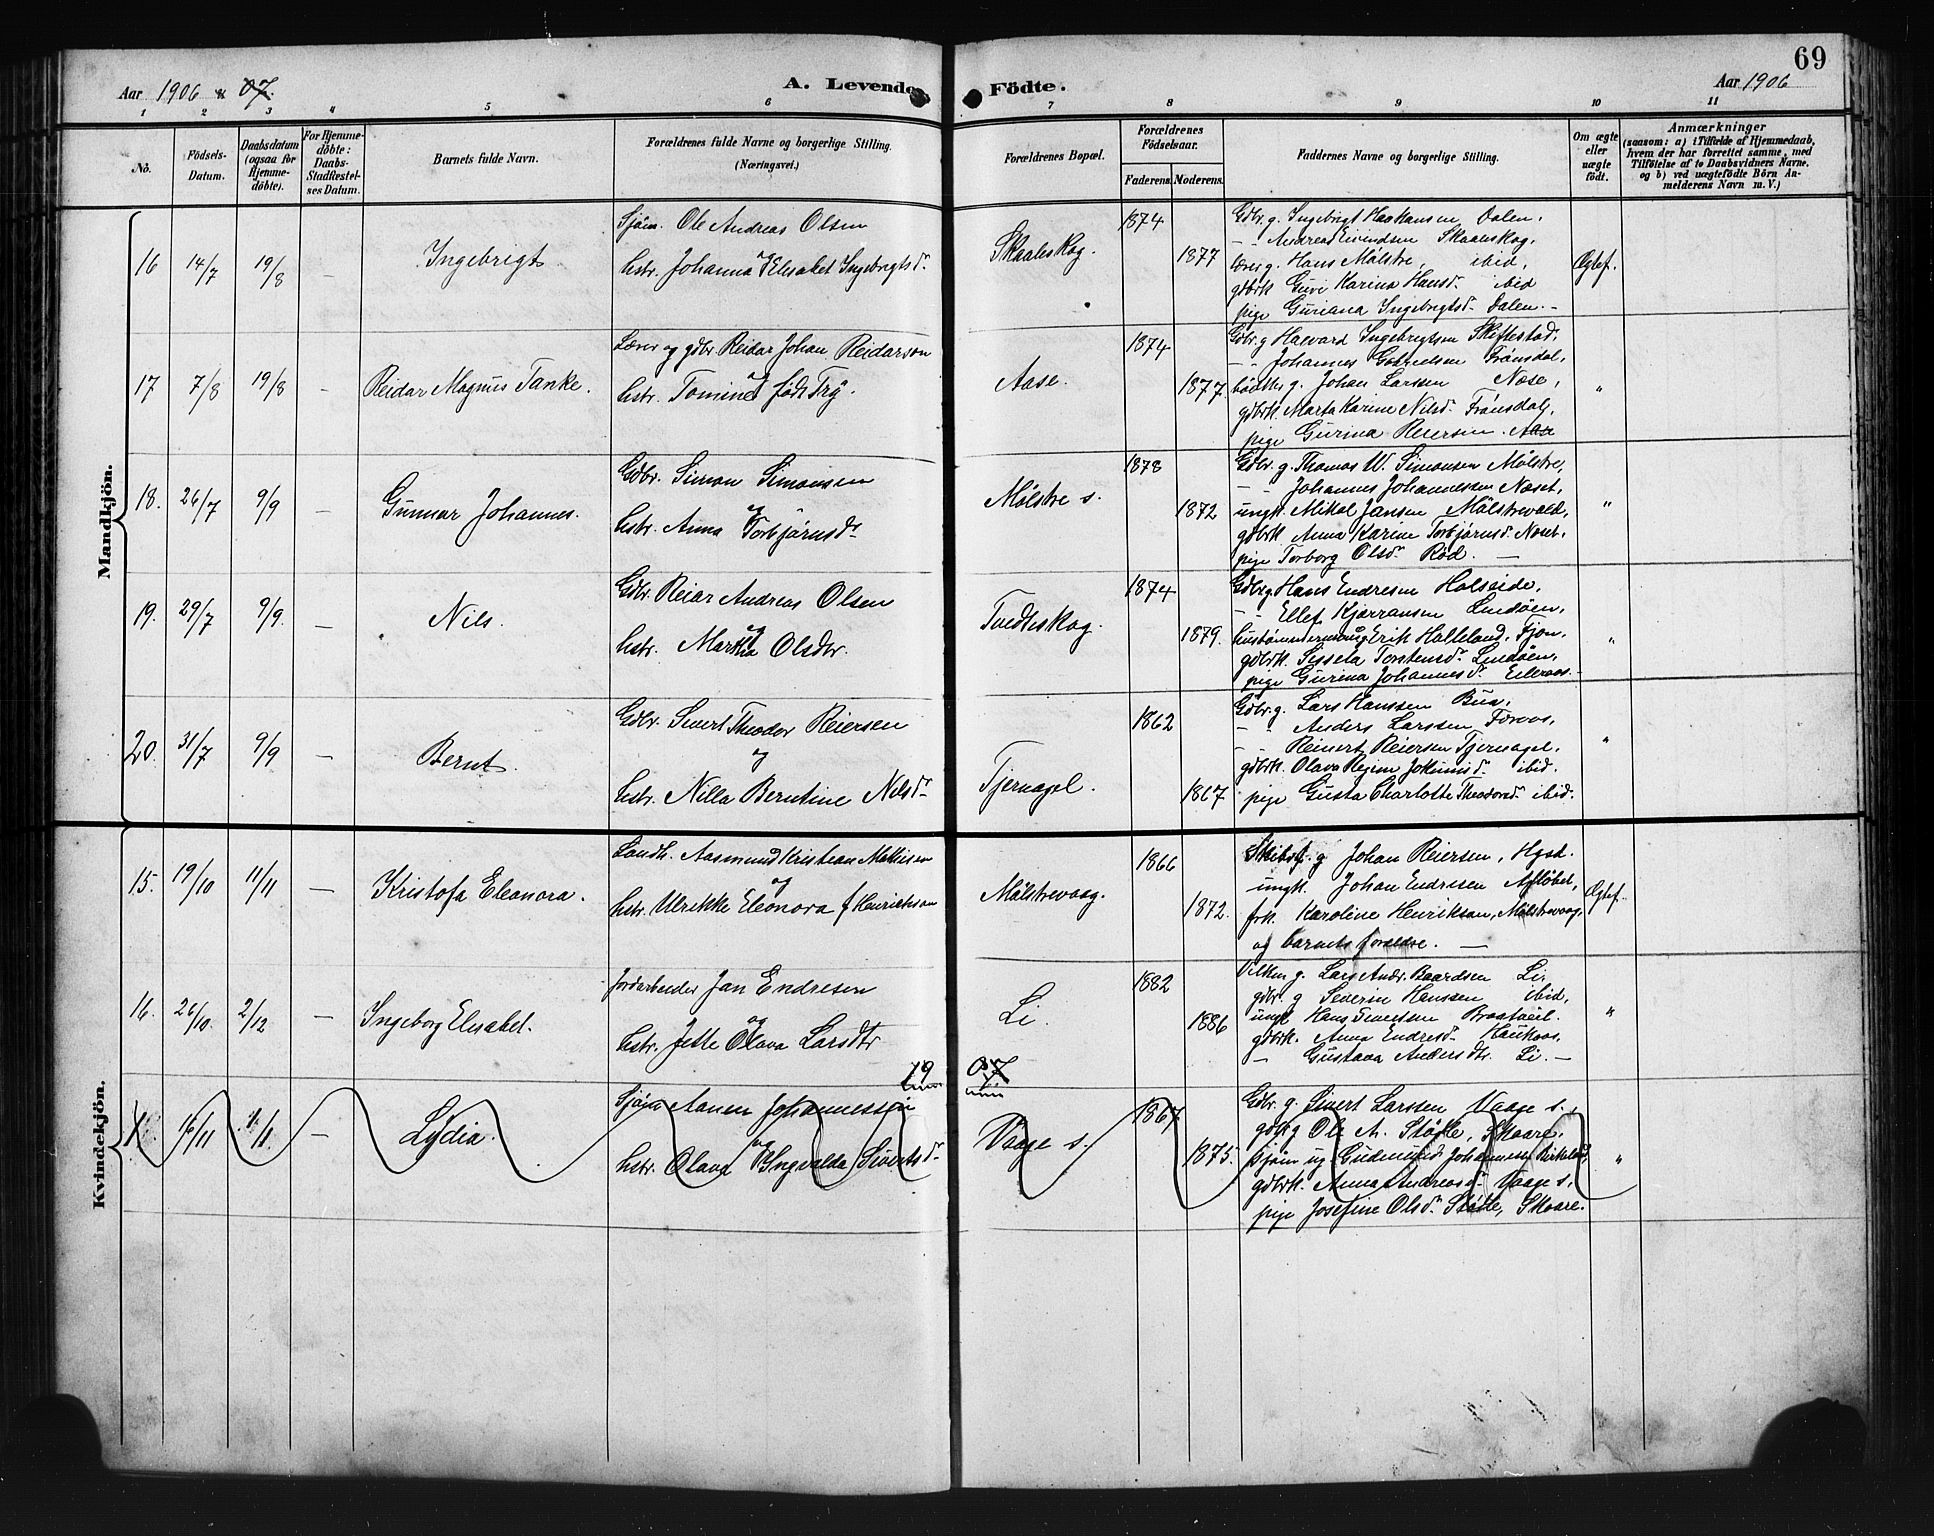 69
Aar 1906 & 07.
A. Levende
Födte.
Aar 1906
1 2 3 4 5 6 7 8 9 10 11
No.
Födsels-
Datum.
Daabsdatum
(ogsaa for
Hjemme-
döbte).
For Hjemme-
döbte:
Daabs-
Stadfestel-
ses Datum.
Barnets fulde Navn.
Forældrenes fulde Navne og borgerlige Stilling.
(Næringsvei.)
Forældrenes Bopæl.
Forældrenes
Födselsaar.
Faderens.
Moderens.
Faddernes Navne og borgerlige Stilling.
Om ægte
eller
uægte
födt.
Anmærkninger
(saasom: a) i Tilfælde af Hjemmedaab,
hvem der har forrettet samme, med
Tilföielse af to Daabsvidners Navne,
og b) ved uægtefödte Börn An-
melderens Navn m. V.)
Mandkjön.
16 14/7 19/8 — Ingebrigt.
Sjöm. Ole Andreas Olsen
og
hstr. Johanna Elisabet Ingebrigtsd.
Skaaleskog.
1874
1877
Gdbr. g. Ingebrigt Haakansen Dalen.
— Andreas Eivindsen Skaaleskog.
lærer g. Hans Mölstre, ibid.
gdbrk Guri Karina Hansd. ibid
pige Guriana Ingebrigtsd. Dalen. —
Ægtef.
17 7/8 19/8 — Reidar Magnus Tanke.
Lærer og gdbr. Reidar Johan Reidarson
og
hstr. Tomine født Try.
Aase.
1874
1877.
Gdbr. g Haavard Ingebrigtsen Skiftestad.
— Johannes Gabrielsen Frönsdal,
g. Johan Larssen Næse,
gdbrk. Marta Karine Nilsd. Frönsdal,
pige Gurina Reiersen.
"
18. 26/7 9/9 — Gunnar Johannes.
Gdbr. Simon Simonsen
og
hstr. Anna Torbjörnsd.
Mölstre s.
1878
1872
Gdbr. g. Thomas W. Simonsen Mölstre,
— Johannes Johannessen Næset,
ungk. Mikal Jansen Mölstrevold,
gdbrk Anna Karine Torbjörnsd. Næset.
pige Torborg Olsd. Röd. —
"
19. 29/7 9/9. — Nils.
Gdbr. Reiar Andreas Olsen
og
hstr. Martha Olsdtr.
Tvedteskog.
1874
1879.
Gdbr g Hans Endresen Halseide,
— Ellef Kjærransen Lindöen,
Erik Halleland, Fjon,
gdbrk. Sissela Torstensd. Lindöen,
pige Gurina Johannesd. Eileraas. —
"
20. 31/7 9/9 — Bernt.
Gdbr. Sivert Theodor Reiersen
og
hstr. Nilla Berntine Nilsd.
Tjernagel.
1862
1867
Gdbr. g. Lars Hanssen Bua,
— Anders Larssen
— Reinert Reiersen Tjernagel.
gdbrk. Olava Regine Jokumsd. ibid.
pige Gusta Charlotte Theodorsd. ibid.
"
Kvindekjön.
15. 19/10 11/11 — Kristofa Eleonora.
Landh. Aasmund Kristian Mathisen
og
hstr. Ulrikke Eleonora f Henriksen
Mölstrevaag.
1866
1872.
Skibsf. g Johan Reiersen,
ungk. Johan Endresen
frk. Karoline Henriksen, Mölstrevaag,
og barnets forældre. —
Ægtef.
16. 26/10. 2/12 — Ingeborg Elisabet.
Jordarbeider Jan Endresen
og
hstr. Jette Olava Larsdtr
Li.
1882
1886
g. Lars Andr. Baardsen Li,
gdbr. g Severin Hanssen ibid,
ungk Hans Sivertsen Braatveit.
gdbrk. Anna Endresd. Haukaas,
— Gustava Andersdtr. Li. —
"
19 07
16/11 — Lydia.
Sjöm Aanen Johannessen
og
hstr. Olava Yngvalda Sivertsd.
Vaage s.
1867
1875.
Gdbr. g. Sivert Larssen Vaage s.,
gdbr g Ole A. Stöle, Skaare.
sjöm ug. Gudmund Johannessen
gdbrk. Anna Andreasd. Vaage s,
pige Josefine Olsd. Stöle, Skaare.
"